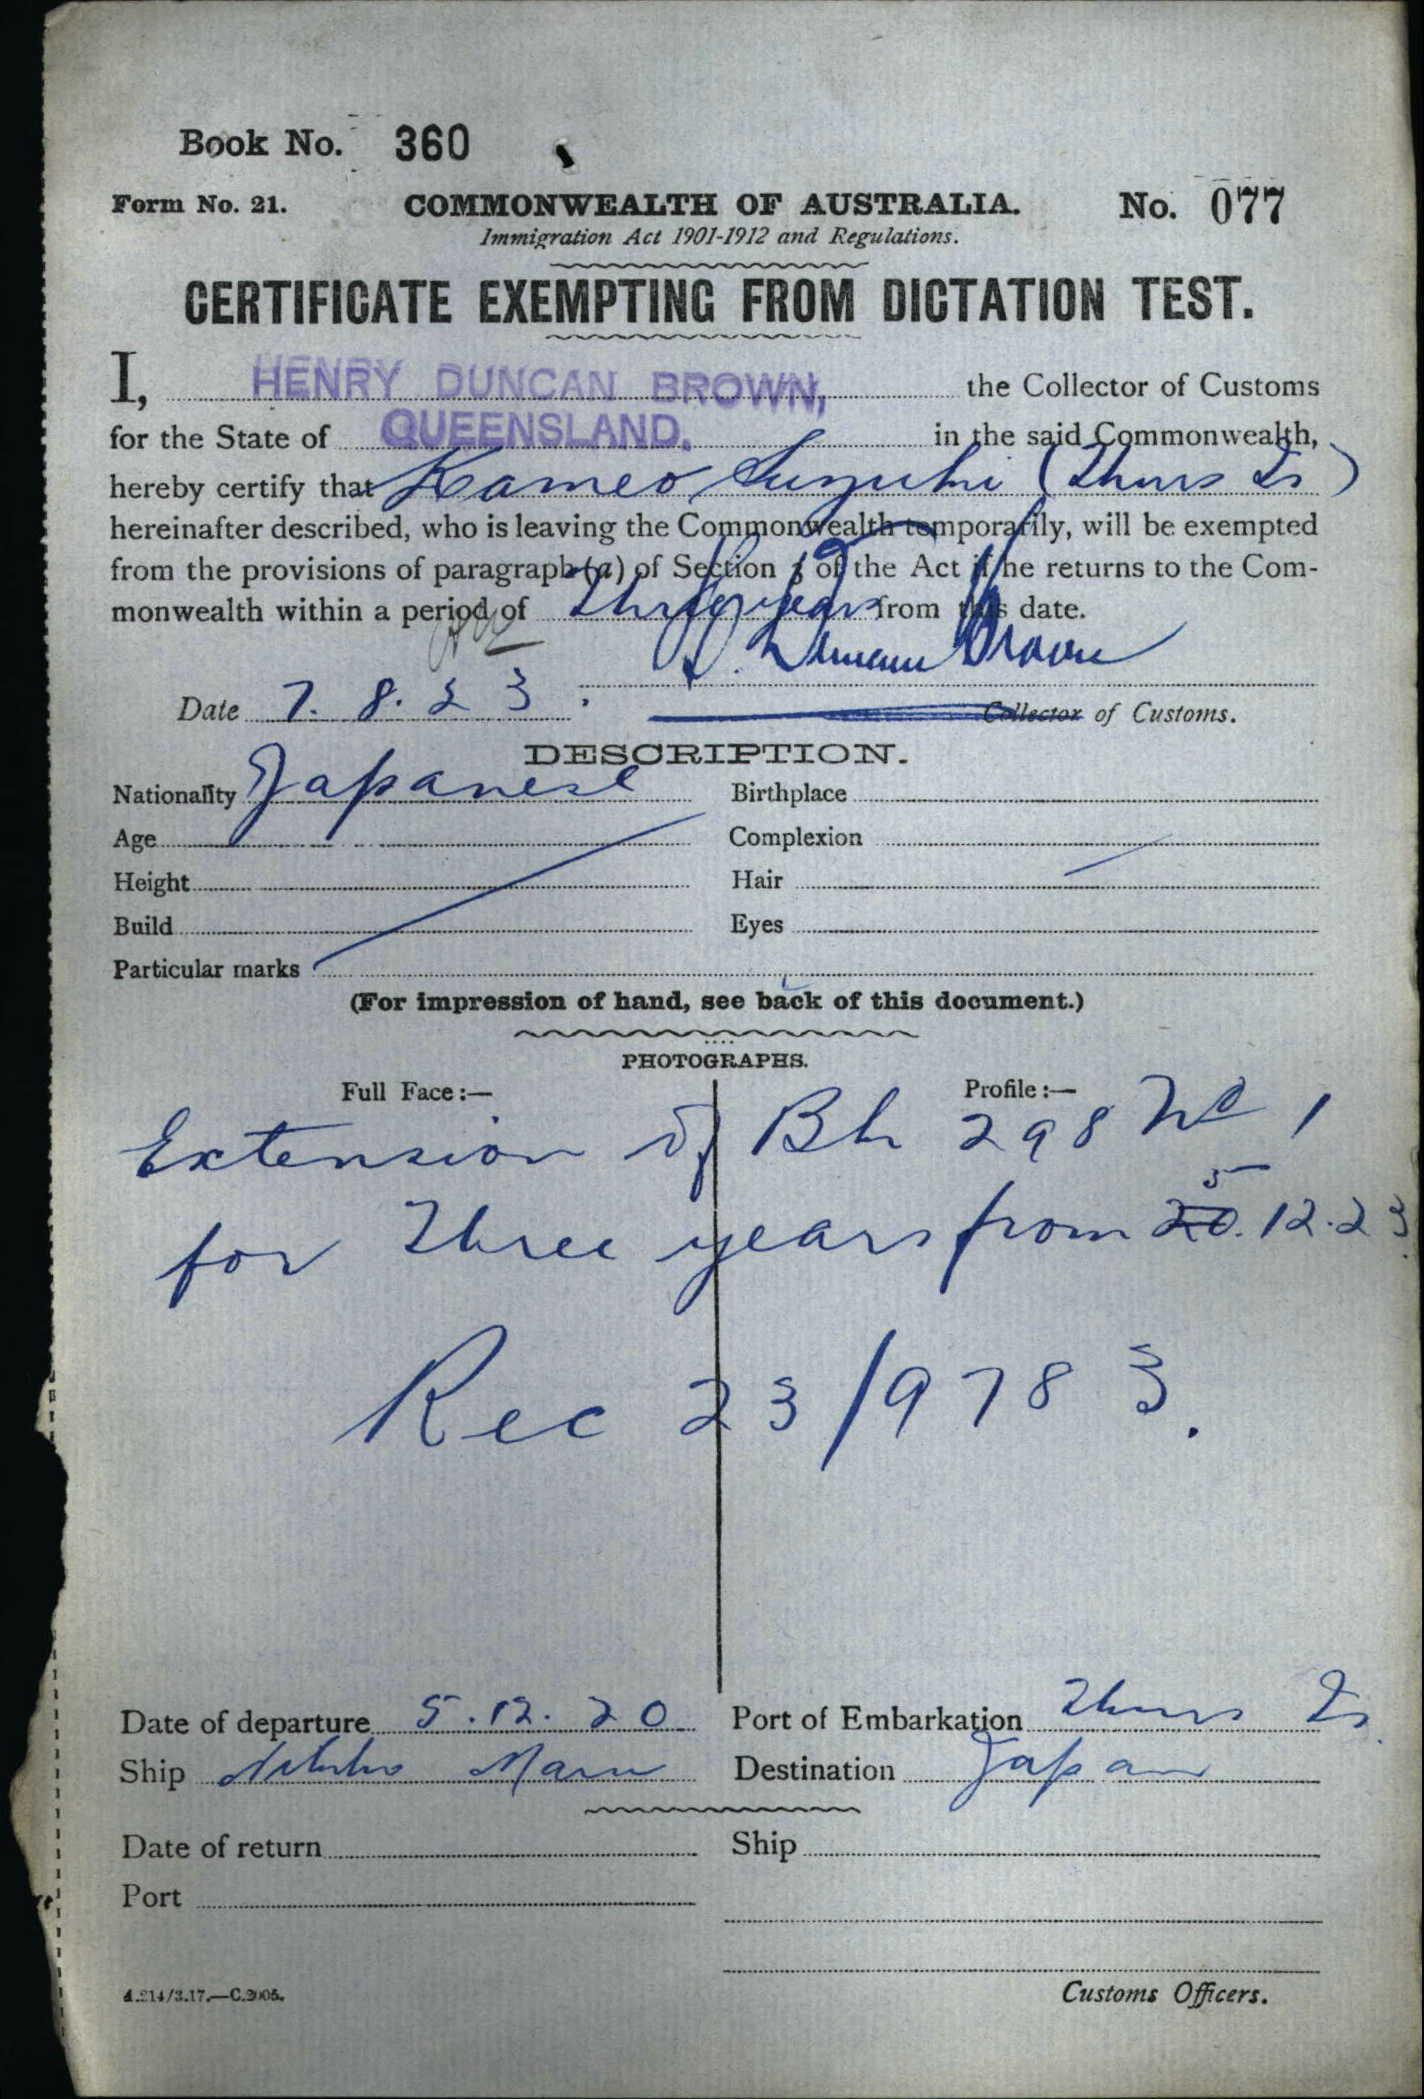 Book No. 360
Form No. 21. COMMONWEALTH OF AUSTRALIA. No. 077
Immigration Act 1901-1912 and Regulations.
CERTIFICATE EXEMPTING FROM DICTATION TEST.
I, HENRY DUNCAN BROWN, the Collector of Customs
for the State of QUEENSLAND. in the said Commonwealth,
hereby certify that Kameo Suzuki (Thurs Is)
hereinafter described, who is leaving the Commonwealth temporarily, will be exempted
from the provisions of paragraph (a) of Section 3 of the Act if he returns to the Com-
monwealth within a period of Three years from this date.
H. Duncan Brown
Date 7.8.23. Collector of Customs.
DESCRIPTION.
Nationality Japanese Birthplace
Age Complexion
Height Hair
Build Eyes
Particular marks
(For impression of hand, see back of this document.)
PHOTOGRAPHS.
Full Face:— Profile:—
Extension of Bk 298 No 1
for Three years from 20. 5 12.23
Rec 23/9783.
Date of departure 5.12.20 Port of Embarkation Thurs Is
Ship Nikko Maru Destination Japan
Date of return Ship
Port
A.214/3.17.—C.2005. Customs Officers.